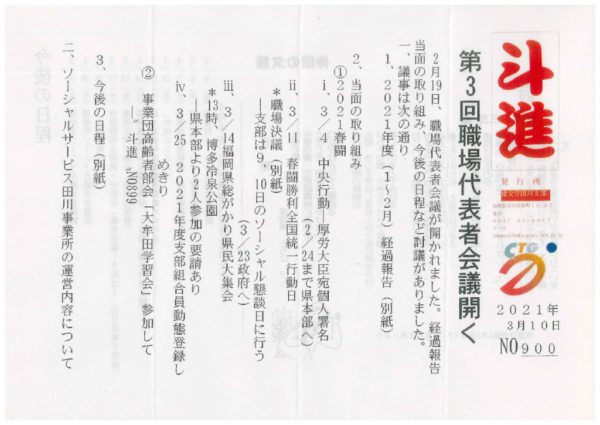 斗進
発行所
CTG
2021年
3月10日
NO900
第3回職場代表者会議開く
2月19日、職場代表者会議が開かれました。経過報告
当面の取り組み、今後の日程など討議がありました。
一、議事は次の通り
1、2021年度(1～2月)経過報告(別紙)
2、当面の取り組み
①2021春闘
ⅰ、3/4 中央行動―厚労大臣宛個人署名
(2/24まで県本部へ)
(3/23政府へ)
ⅱ、3/11 春闘勝利全国統一行動日
*職場決議(別紙)
―支部は9、10日のソーシャル懇談日に行う
ⅲ、3/14福岡県総がかり県民大集会
*13時、博多冷泉公園
―県本部より2人参加の要請あり
ⅳ、3/25 2021年度支部組合員動態登録し
めきり
② 事業団高齢者部会「大牟田学習会」参加して
―〝斗進〟NO899
3、今後の日程(別紙)
二、ソーシャルサービス田川事業所の運営内容について